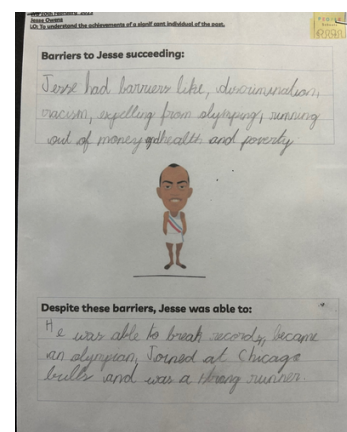 Jesse Owens
LO: To understand the achievements of a significant individual of the past.
Barriers to Jesse succeeding:
Jesse had barriers like, discrimination,
racism, expelling from olymping, running
out of money and health and poverty
Despite these barriers, Jesse was able to:
He was able to break records, became
an olympian, Joined at Chicago
bulls and was a strong runner.